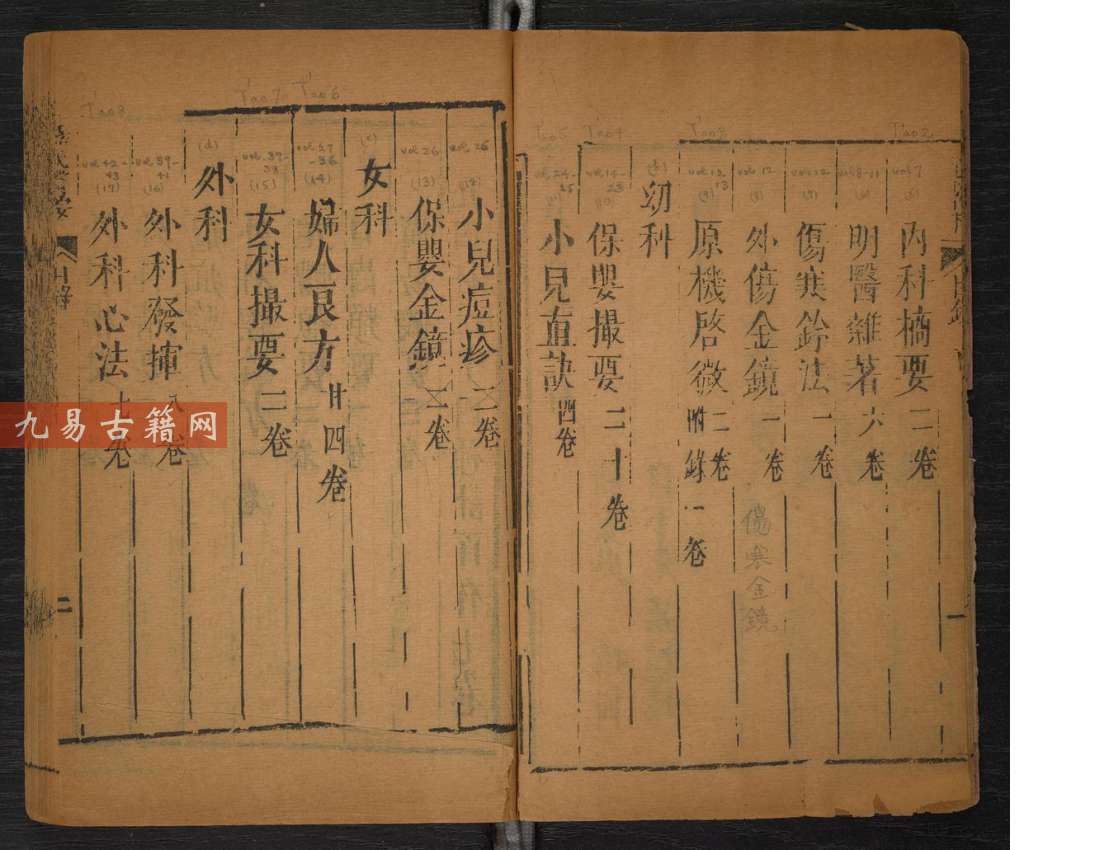 內科摘要 二卷
明醫雜著 六卷
傷寒鈐法 一卷
外傷金鏡 一卷
傷寒金鏡
原機啓微 二卷 附錄一卷
幼科
保嬰撮要 二十卷
小兒直訣 四卷
小兒痘疹 二卷
保嬰金鏡 二卷
女科
婦人良方 廿四卷
女科撮要 二卷
外科
外科發揮 八卷
外科心法 七卷
目錄
一
二
九易古籍网